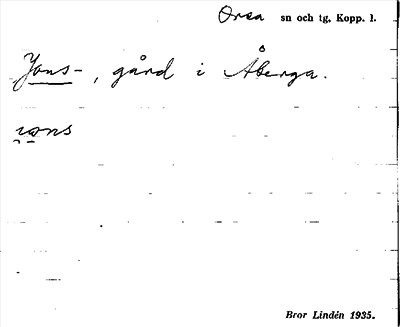 Orsa sn och tg, Kopp. l.
Jons-, gård i Åberga.
Bror Lindén 1935.